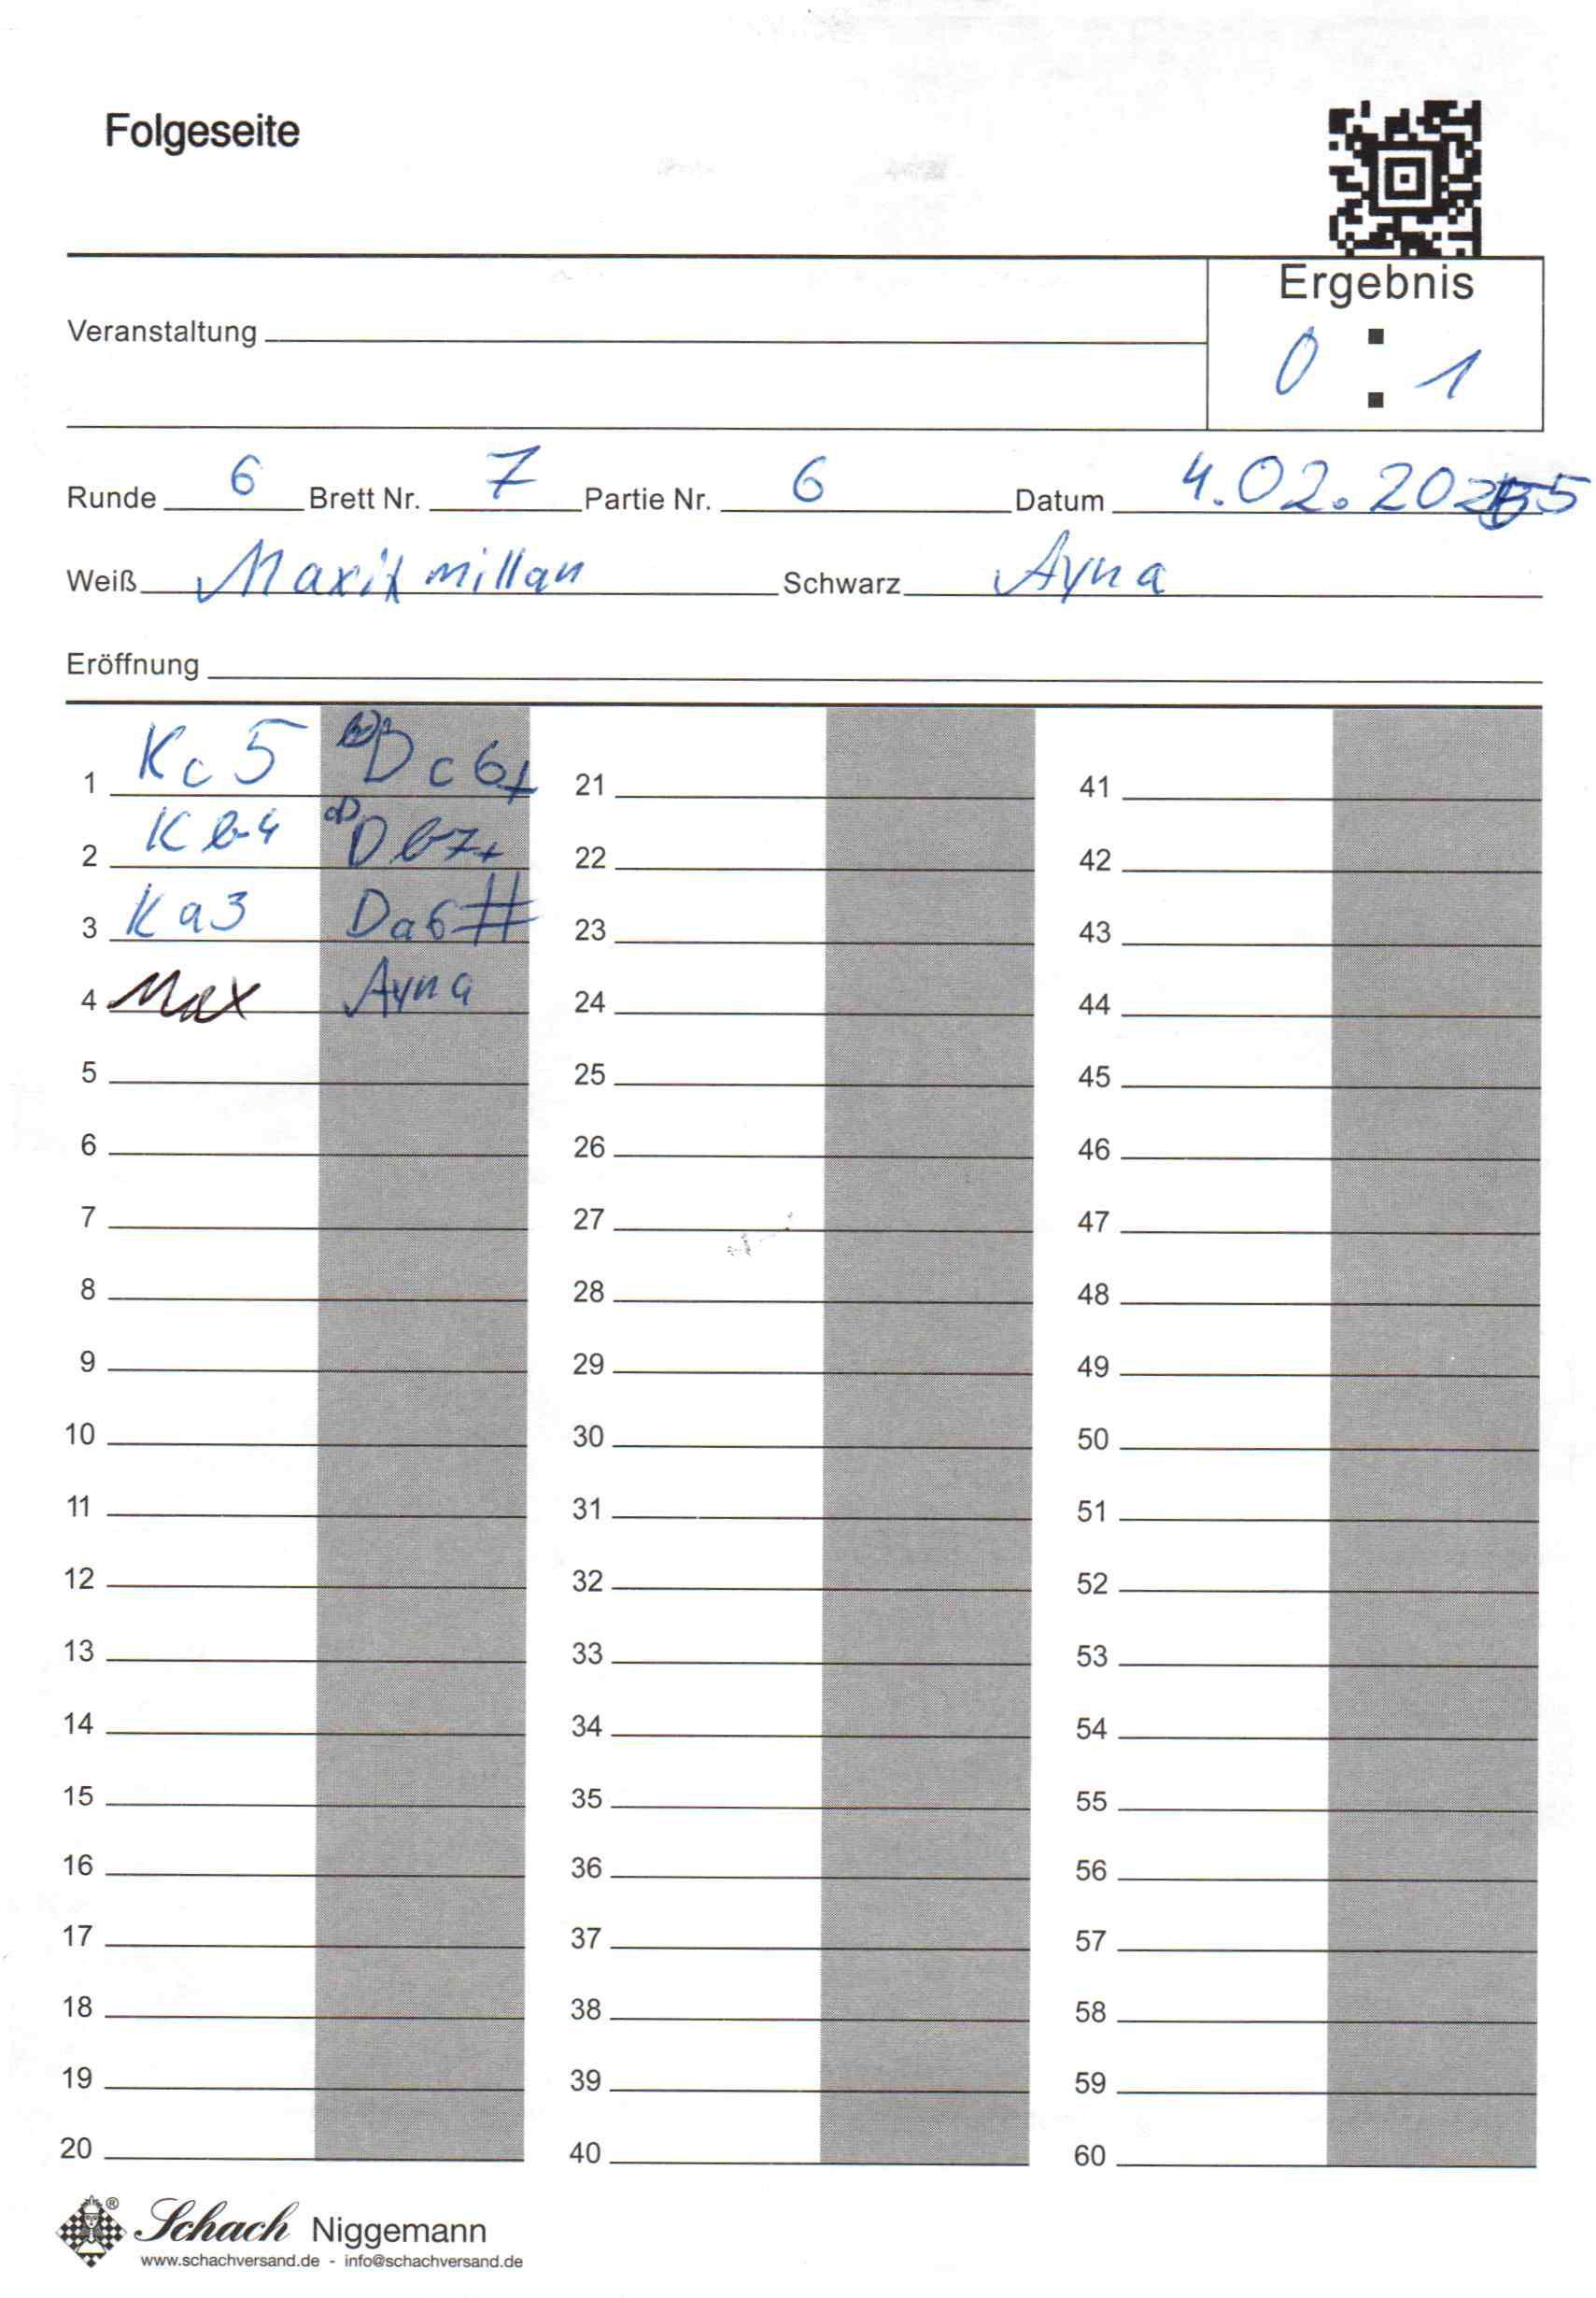 Folgeseite
Ergebnis
Veranstaltung
0 : 1
Runde 6 Brett Nr. 7 Partie Nr. 6 Datum 4.02.2025
Weiß Maximillan Schwarz Ayna
Eröffnung
1 Kc5 Dc6+ 21 41
2 Kb4 Db7+ 22 42
3 Ka3 Da6# 23 43
4 Max Ayna 24 44
5 25 45
6 26 46
7 27 47
8 28 48
9 29 49
10 30 50
11 31 51
12 32 52
13 33 53
14 34 54
15 35 55
16 36 56
17 37 57
18 38 58
19 39 59
20 40 60
Schach Niggemann
www.schachversand.de - info@schachversand.de